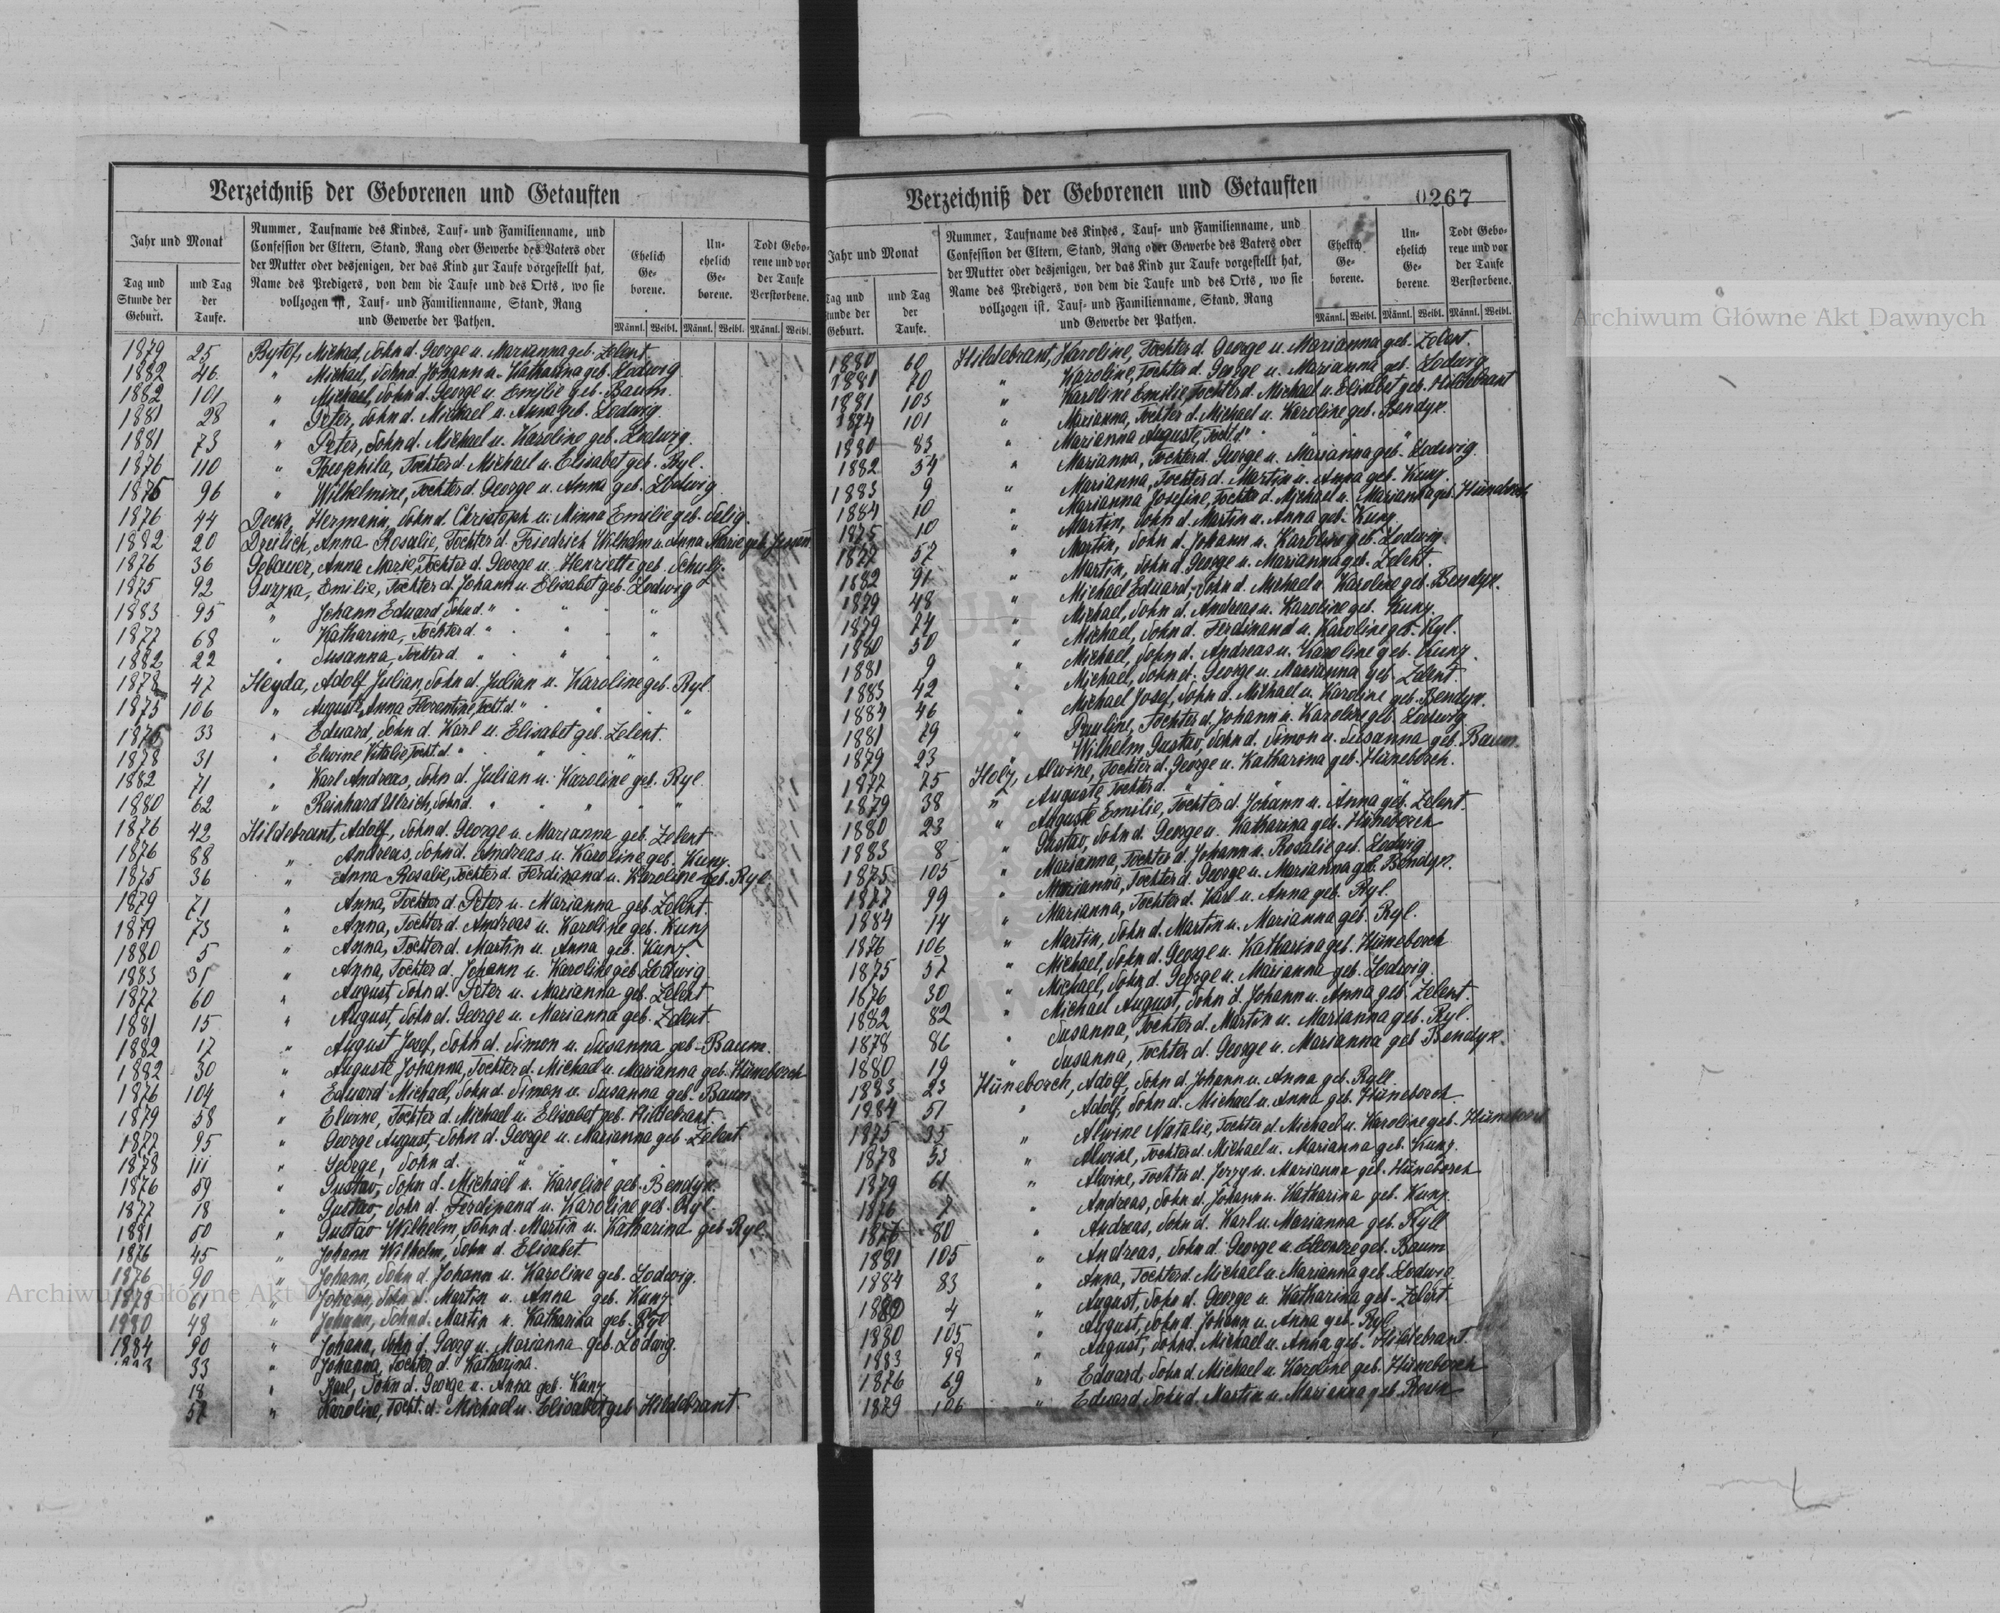 Verzeichniß der Geborenen und Getauften
Jahr und Monat
Tag und
Stunde der
Geburt.
und Tag
der
Taufe.
Nummer, Taufname des Kindes, Tauf- und Familienname, und
Confession der Eltern, Stand, Rang oder Gewerbe des Vaters oder
der Mutter oder desjenigen, der das Kind zur Taufe vorgestellt hat,
Name des Predigers, von dem die Taufe und des Orts, wo sie
vollzogen ist, Tauf- und Familienname, Stand, Rang
und Gewerbe der Pathen.
Ehelich
Ge-
borene.
Un-
ehelich
Ge-
borene.
Todt Gebo-
rene und vor
der Taufe
Verstorbene.
Männl. Weibl. Männl. Weibl. Männl. Weibl.
1879 25 Bytof, Michael, Sohn d. George u. Marianna geb. Zelent
1882 46 " Michael, Sohn d. Johann u. Katharina geb. Lodwig
1882 101 " Michael, Sohn d. George u. Emilie geb. Baum.
1881 28 " Peter, Sohn d. Michael u. Anna geb. Lodwig.
1881 73 " Peter, Sohn d. Michael u. Karoline geb. Lodwig.
1876 110 " Theophila, Tochter d. Michael u. Elisabet geb. Ryl.
1876 96 " Wilhelmine, Tochter d. George u. Anna geb. Lodwig
1876 44 Decke, Hermann, Sohn d. Christoph u. Minna Emilie geb. Selig.
1882 20 Dreilich, Anna Rosalie, Tochter d. Friedrich Wilhelm u. Anna Marie geb.
1876 36 Gebauer, Anna Marie, Tochter d. George u. Henriette geb. Schulz.
1875 92 Guzka, Emilie, Tochter d. Johann u. Elisabet geb. Lodwig
1883 95 " Johann Eduard Sohn d. " " " "
1877 68 " Katharina, Tochter d. " " " "
1882 22 " Susanna, Tochter d. " " " "
1878 47 Heyda, Adolf Julian, Sohn d. Julian u. Karoline geb. Ryl.
1875 106 " Auguste Anna Florentine, Tocht. d. " " " "
1876 33 " Eduard, Sohn d. Karl u. Elisabet geb. Zelent.
1878 31 " Elwine Vitalie, Tocht. d. " " "
1882 71 " Karl Andreas, Sohn d. Julian u. Karoline geb. Ryl.
1880 62 " Reinhard Ulrich, Sohn d. " " " "
1876 42 Hildebrant, Adolf, Sohn d. George u. Marianna geb. Zelent
1876 88 " Andreas, Sohn d. Andreas u. Karoline geb. Kunz.
1875 36 " Anna Rosalie, Tochter d. Ferdinand u. Karoline geb. Ryl
1879 71 " Anna, Tochter d. Peter u. Marianna geb. Zelent.
1879 73 " Anna, Tochter d. Andreas u. Karoline geb. Kunz
1880 5 " Anna, Tochter d. Martin u. Anna geb. Kunz.
1883 31 " Anna, Tochter d. Johann u. Karoline geb. Lodwig
1877 60 " August, Sohn d. Peter u. Marianna geb. Zelent
1881 15 " August, Sohn d. George u. Marianna geb. Zelent.
1882 17 " August Josef, Sohn d. Simon u. Susanna geb. Baum.
1882 30 " Auguste Johanna, Tochter d. Michael u. Marianna geb. Hüneborch
1876 104 " Eduard Michael, Sohn d. Simon u. Susanna geb. Baum
1879 58 " Elwine, Tochter d. Michael u. Elisabet geb. Hildebrant.
1877 95 " George August, Sohn d. George u. Marianna geb. Zelent
1878 111 " George, Sohn d. " " " "
1876 59 " Gustav, Sohn d. Michael u. Karoline geb. Bendyk.
1877 18 " Gustav, Sohn d. Ferdinand u. Karoline geb. Ryl.
1881 50 " Gustav Wilhelm, Sohn d. Martin u. Katharina geb. Ryl.
1876 45 " Johann Wilhelm, Sohn d. Elisabet
1876 90 " Johann, Sohn d. Johann u. Karolina geb. Lodwig.
1878 61 " Johann, Sohn d. Martin u. Anna geb. Kunz
1980 48 " Johann, Sohn d. Martin u. Katharina geb. Ryl
1884 90 " Johann, Sohn d. Georg u. Marianna geb. Lodwig.
33 " Johanna, Tochter d. Katharina.
18 " Karl, Sohn d. George u. Anna geb. Kunz
57 " Karoline, Tocht. d. Michael u. Elisabet geb. Hildebrant.
Verzeichniß der Geborenen und Getauften
0267
Jahr und Monat
Tag und
Stunde der
Geburt.
und Tag
der
Taufe.
Nummer, Taufname des Kindes, Tauf- und Familienname, und
Confession der Eltern, Stand, Rang oder Gewerbe des Vaters oder
der Mutter oder desjenigen, der das Kind zur Taufe vorgestellt hat,
Name des Predigers, von dem die Taufe und des Orts, wo sie
vollzogen ist, Tauf- und Familienname, Stand, Rang
und Gewerbe der Pathen.
Ehelich
Ge-
borene.
Un-
ehelich
Ge-
borene.
Todt Gebo-
rene und vor
der Taufe
Verstorbene.
Männl. Weibl. Männl. Weibl. Männl. Weibl.
1880 60 Hildebrant, Karoline, Tochter d. George u. Marianna geb. Zelent.
1881 70 " Karoline, Tochter d. George u. Marianne geb. Lodwig
1881 103 " Karoline Emilie, Tochter d. Michael u. Elisabet geb. Hildebrant
1874 101 " Marianna, Tochter d. Michael u. Karoline geb. Bendyk.
1880 83 " Marianna Auguste, Tocht. d. " " "
1882 54 " Marianna, Tochter d. George u. Marianna geb. Lodwig
1883 9 " Marianna, Tochter d. Martin u. Anna geb. Kunz.
1884 10 " Marianna Josefine, Tochter d. Michael u. Marianna geb. Hüneborch
1875 10 " Martin, Sohn d. Martin u. Anna geb. Kunz
1877 57 " Martin, Sohn d. Johann u. Karoline geb. Lodwig.
1882 91 " Martin, Sohn d. George u. Marianna geb. Zelent.
1879 48 " Michael Eduard, Sohn d. Michael u. Karoline geb. Bendyk.
1879 74 " Michael, Sohn d. Andreas u. Karoline geb. Kunz.
1880 50 " Michael, Sohn d. Ferdinand u. Karoline geb. Ryl.
1881 9 " Michael, Sohn d. Andreas u. Karoline geb. Kunz.
1883 42 " Michael, Sohn d. George u. Marianna geb. Zelent.
1884 46 " Michael Josef, Sohn d. Michael u. Karoline geb. Bendyk.
1881 79 " Pauline, Tochter d. Johann u. Karoline geb. Lodwig
1879 23 " Wilhelm Gustav, Sohn d. Simon u. Susanna geb. Baum.
1877 75 Holz, Alwine, Tochter d. George u. Katharina geb. Hüneborch.
1879 38 " Auguste, Tochter d. " " " "
1880 23 " Auguste Emilie, Tochter d. Johann u. Anna geb. Zelent.
1883 8 " Gustav, Sohn d. George u. Katharina geb. Hüneborch
1875 105 " Marianna, Tochter d. Johann u. Rosalie geb. Lodwig
1877 99 " Marianna, Tochter d. George u. Marianna geb. Bendyk.
1884 14 " Marianna, Tochter d. Karl u. Anna geb. Ryl.
1876 106 " Martin, Sohn d. Martin u. Marianna geb. Ryl.
1875 37 " Michael, Sohn d. George u. Katharina geb. Hüneborch
1876 30 " Michael, Sohn d. George u. Marianna geb. Lodwig
1882 82 " Michael August, Sohn d. Johann u. Anna geb. Zelent.
1878 86 " Susanna, Tochter d. Martin u. Marianna geb. Ryl.
1880 19 " Susanna, Tochter d. George u. Marianna geb. Bendyk.
1883 23 Hüneborch, Adolf, Sohn d. Johann u. Anna geb. Ryll
1884 51 " Adolf, Sohn d. Michael u. Anna geb. Hüneborch.
1875 35 " Alwine Natalie, Tochter d. Michael u. Karoline geb. Hüneborch
1878 53 " Alwine, Tochter d. Michael u. Marianna geb. Kunz.
1879 61 " Alwine, Tochter d. Jerzy u. Marianna geb. Hüneborch
1876 7 " Andreas, Sohn d. Johann u. Katharina geb. Kunz.
1876 80 " Andreas, Sohn d. Karl u. Marianna geb. Ryll
1881 105 " Andreas, Sohn d. George u. Eleonore geb. Baum
1884 83 " Anna, Tochter d. Michael u. Marianna geb. Lodwig.
1880 4 " August, Sohn d. George u. Katharina geb. Zelent.
1880 105 " August, Sohn d. Johann u. Anna geb. Ryl
1883 98 " August, Sohn d. Michael u. Anna geb. Hildebrant.
1876 69 " Eduard, Sohn d. Michael u. Karoline geb. Hüneborch
1879 106 " Eduard, Sohn d. Martin u. Marianna geb.
Archiwum Główne Akt Dawnych
Archiwum Główne Akt Dawnych